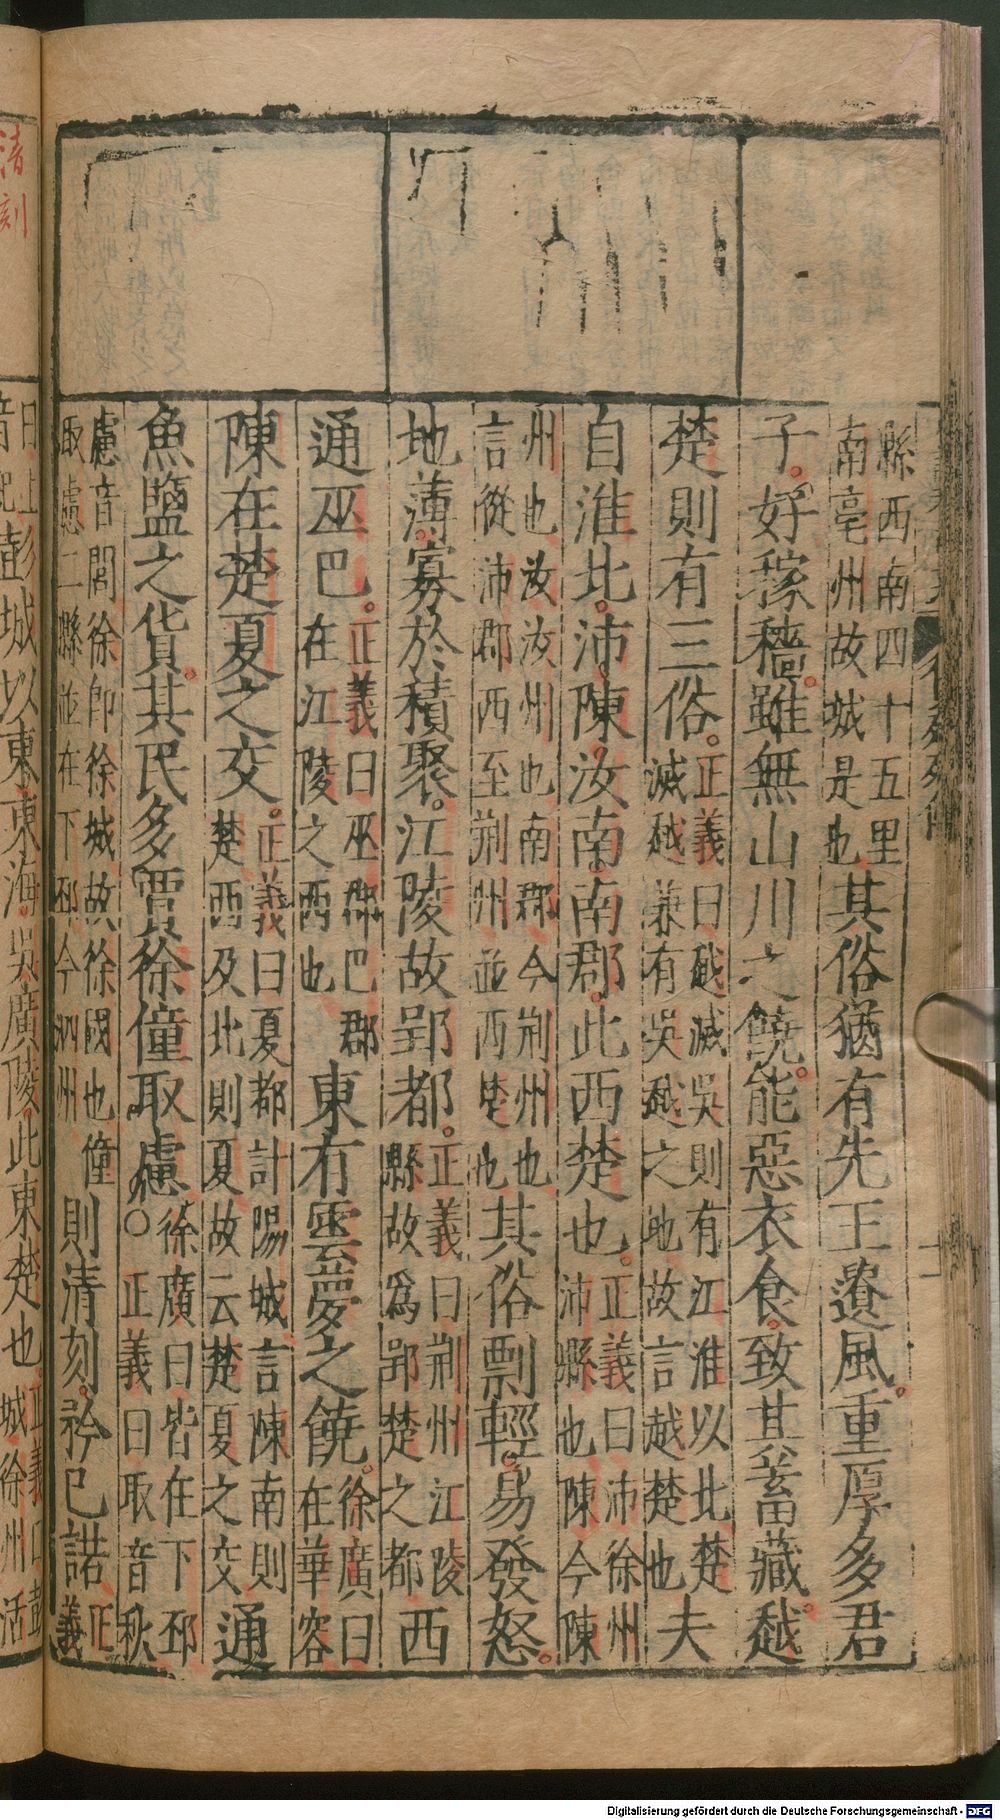 縣西南四十五里
南亳州故城是也其俗猶有先王遺風重厚多君
子好稼穡雖無山川之饒能惡衣食致其蓄藏越
楚則有三俗正義曰越滅吳則有江淮以北楚
滅越兼有吳越之地故言越楚也夫
自淮北沛陳汝南南郡此西楚也正義曰沛徐州
沛縣也陳今陳
州也汝汝州也南郡今荊州也
言從沛郡西至荊州並西楚也其俗剽輕易發怒
地薄寡於積聚江陵故郢都正義曰荊州江陵
縣故為郢楚之都西
通巫巴正義曰巫郡巴郡
在江陵之西也東有雲夢之饒徐廣曰
在華容
陳在楚夏之交正義曰夏都計陽城言陳南則
楚西及北則夏故云楚夏之交通
魚鹽之貨其民多賈徐僮取慮○徐廣曰皆在下邳
正義曰取音秋
慮音閭徐即徐城故徐國也僮
取慮二縣並在下邳今泗州則清刻矜已諾正
義
清刻
彭城以東東海吳廣陵此東楚也正義曰彭
城徐州治
Digitalisierung gefördert durch die Deutsche Forschungsgemeinschaft - DFG